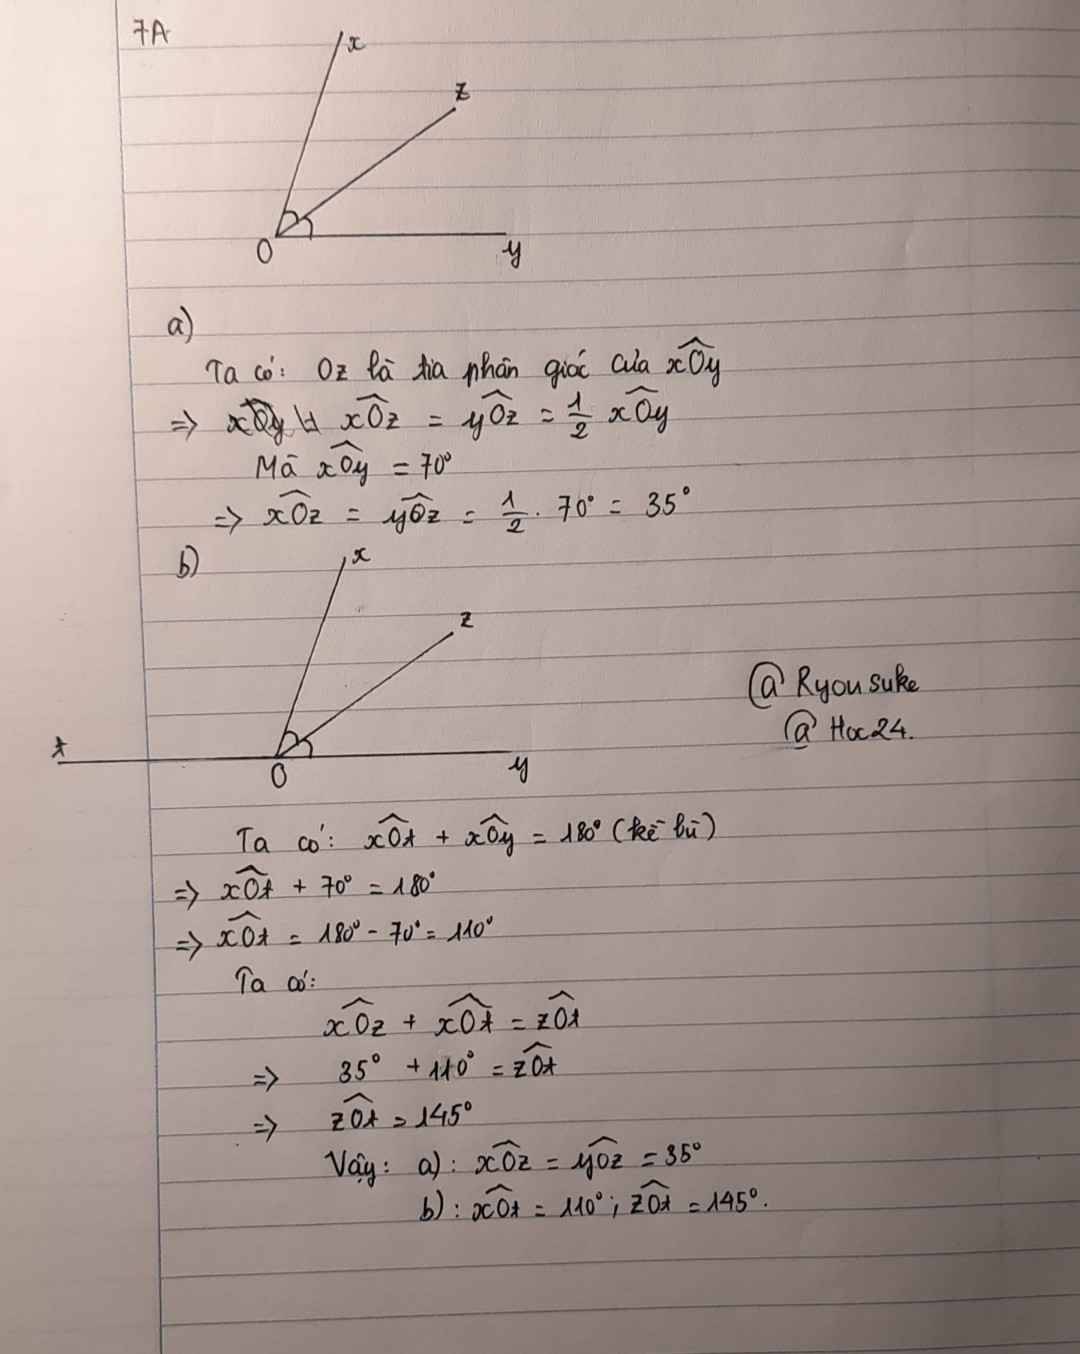 7A
x
z
O
y
a)
Ta có: Oz là tia phân giác của xÔy
=> xÔz = yÔz = 1/2 xÔy
Mà xÔy = 70°
=> xÔz = yÔz = 1/2 . 70° = 35°
b)
x
z
t
O
y
@ Ryousuke
@ Hoc24.
Ta có: xÔt + xÔy = 180° (kề bù)
=> xÔt + 70° = 180°
=> xÔt = 180° - 70° = 110°
Ta có:
xÔz + xÔt = zÔt
=> 35° + 110° = zÔt
=> zÔt = 145°
Vậy: a): xÔz = yÔz = 35°
b): xÔt = 110°; zÔt = 145°.